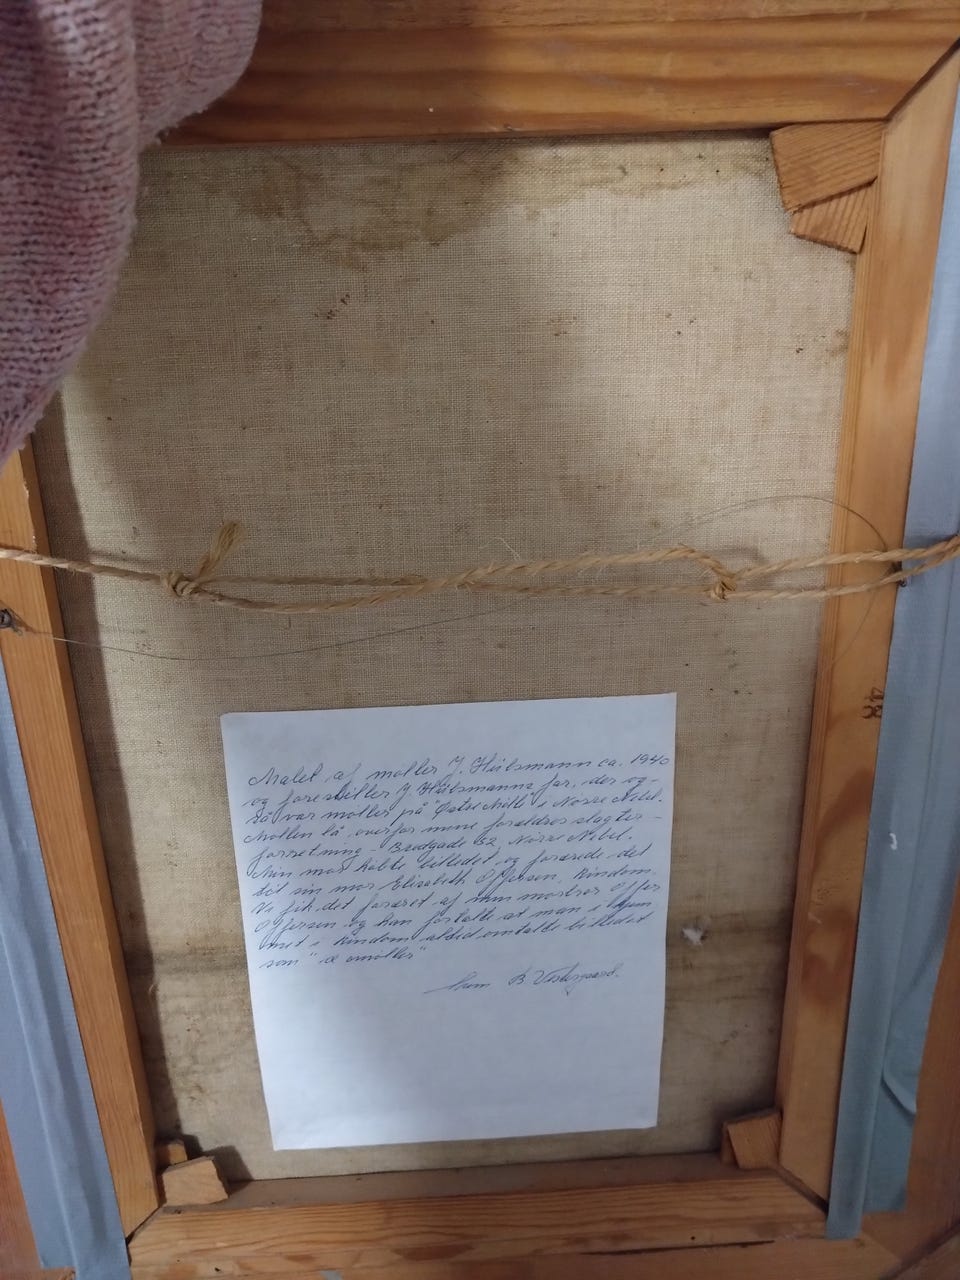 Malet af møller J. Hülsmann ca. 1940
og forestiller J Hülsmanns far, der og-
så var møller på "Østre Mølle" i Nørre Nebel.
Møllen lå overfor mine forældres slagter-
forretning - Bredgade 52, Nørre Nebel.
Min mor købte billedet og forærede det
til sin mor Elisabeth Offersen, Kindom.
Vi fik det foræret af min morbror Offer
Offersen og han fortalte at man i hjem
met i Kindom altid omtalte billedet
som "æ møller"
B Vestergaard.
48